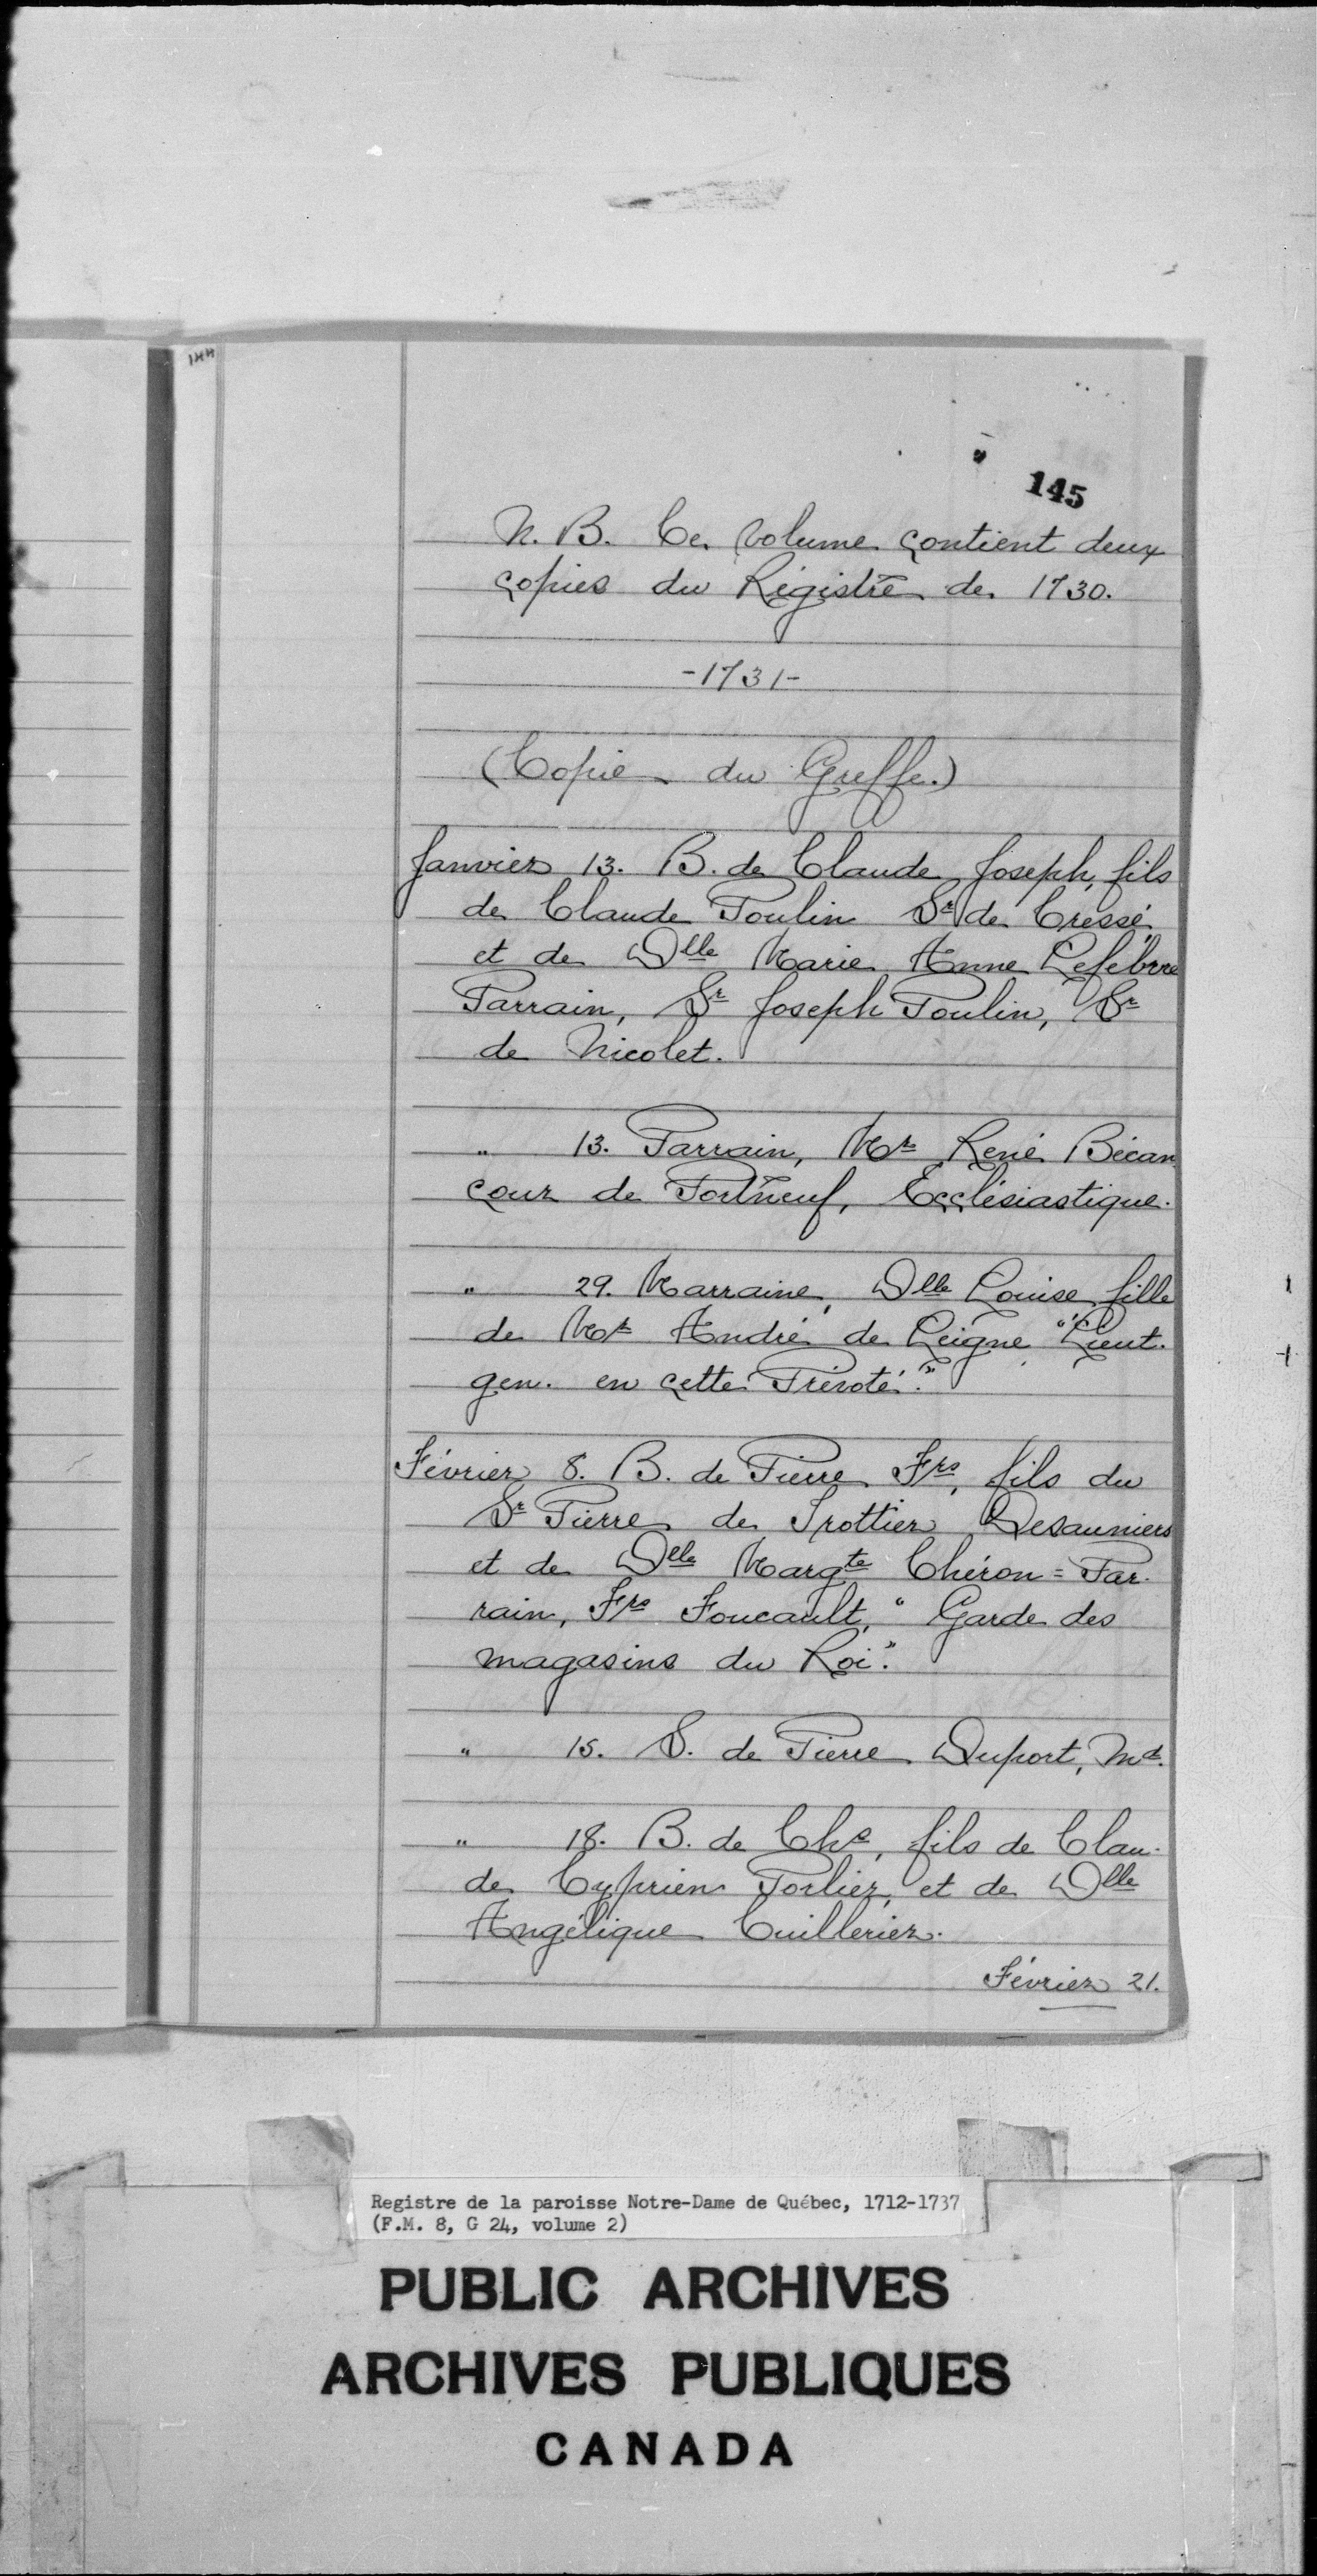 144
145
N. B. Ce volume contient deux
copies du Régistre de 1730.
-1731-
(Copie du Greffe.)
Janvier 13. B. de Claude Joseph, fils
de Claude Poulin Sr de Cressé,
et de Dlle Marie Anne Lefebvre
Parrain, Sr Joseph Poulin, Sr
de Nicolet.
" 13. Parrain, Mr René Bécan
cour de Portneuf, Ecclésiastique.
" 29. Marraine, Dlle Louise fille
de Mr André de Leigne "Lieut.
gen. en cette Prévoté."
Février 8. B. de Pierre Frs, fils du
Sr Pierre de Trottier Desauniers
et de Dlle Margte Chéron = Par-
rain, Frs Foucault, "Garde des
magasins du Roi".
" 15. S. de Pierre Duport, Md.
" 18. B. de Chs, fils de Clau-
de Cyprien Porlier, et de Dlle
Angélique Cuillerier.
Février 21.
Registre de la paroisse Notre-Dame de Québec, 1712-1737
(F.M. 8, G 24, volume 2)
PUBLIC ARCHIVES
ARCHIVES PUBLIQUES
CANADA